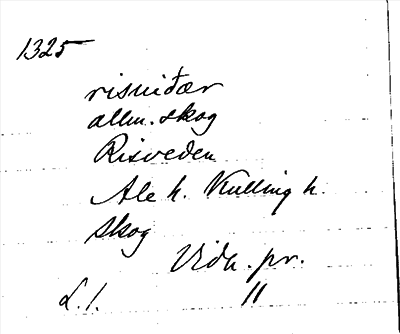 1325
risuiðær
allm. skog
Risveden
Ale h. Kulling h.
skog
Vidu. pr.
L. 1. 11